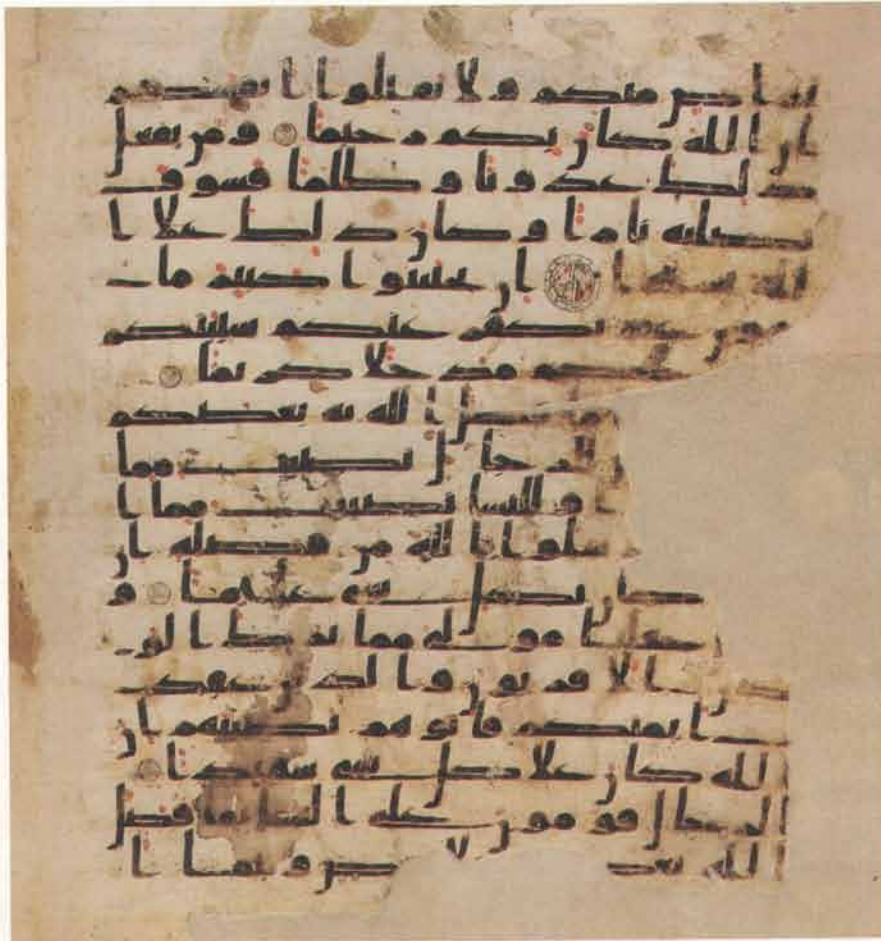 تراض منكم ولا تقتلوا ا نفسكم
ان الله كان بكم رحيما ومن يفعل
ذلك عدونا وظلما فسوف
نصليه نارا وكان ذلك علا ا
لله يسيرا ان تجتنبوا كبير ما
تنهون عنه نكفر عنكم سيتكم
خلكم مدخلا كريما
ما فضل الله به بعضكم
للرجال نصيب مما
ا وللنسا نصيب مما ا
سلوا الله من فضله ان
كان بكل شي عليما و
جعلنا مولي مما ترك الو
لدن والاقربون والذين عقد
ت ايمنكم فاتوهم نصيبهم ان
الله كان علا كل شي شهيدا
الرجال قومون على النسا بما فضل
الله بعض لا بعض وبما ا